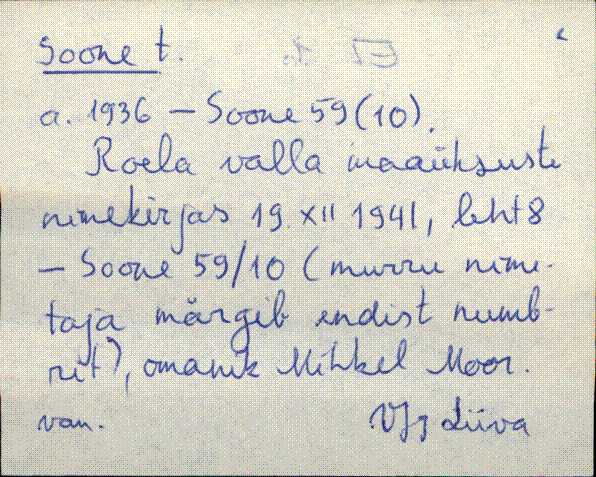 Soone t.
a. 1936 – Soone 59 (10).
Roela valla maaüksuste
nimekirjas 19. XII 1941, leht 8
– Soone 59/10 (murru nime-
taja märgib endist numb-
rit), omanik Mihkel Moor.
van. Liiva